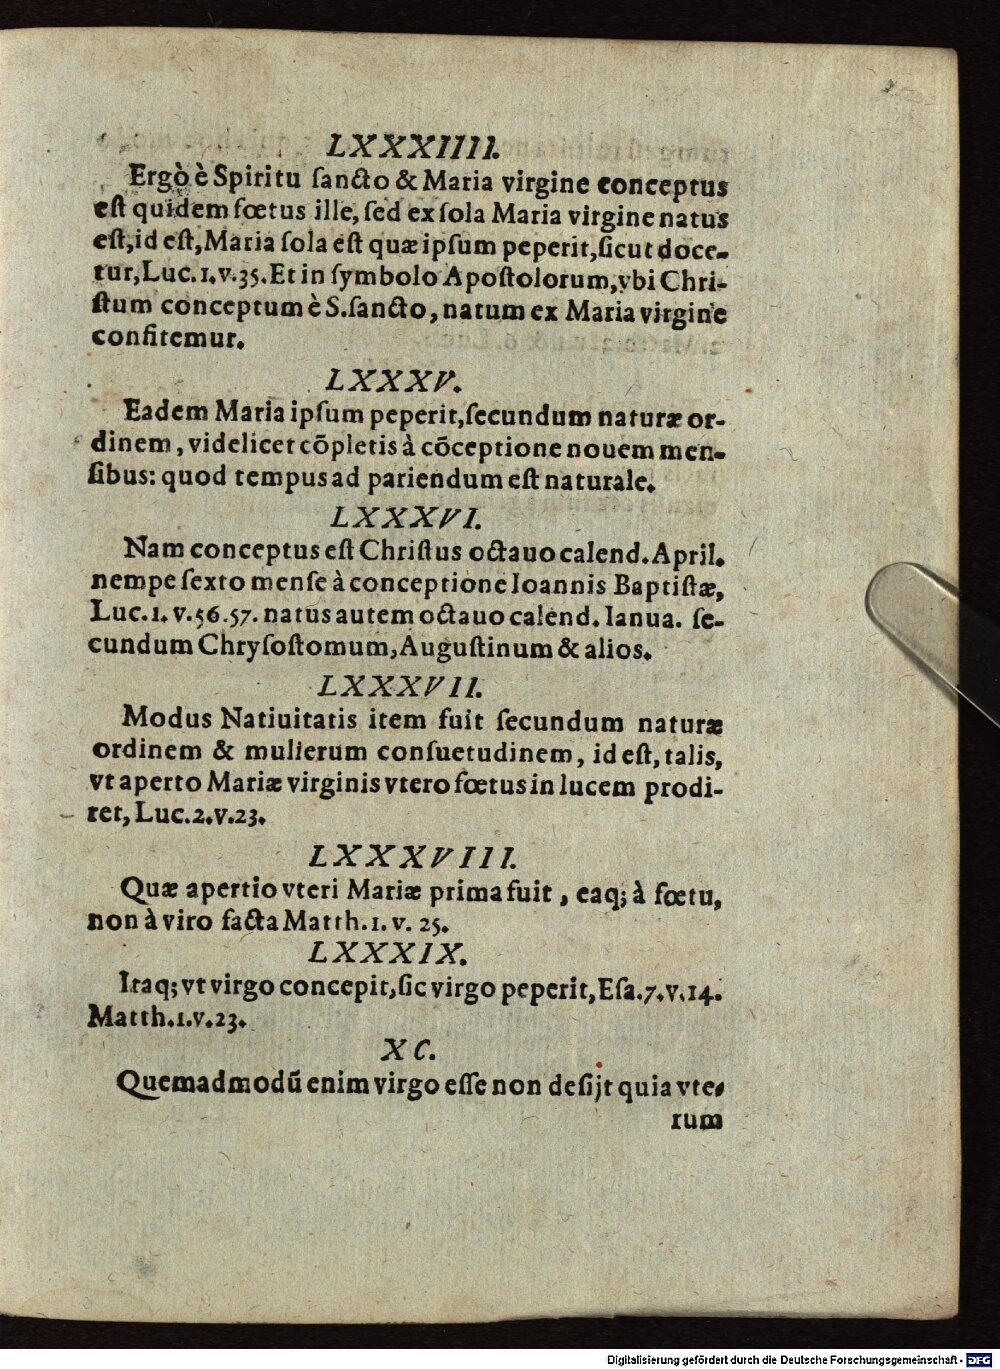 LXXXIIII.
Ergò è Spiritu ſancto & Maria virgine conceptus
eſt quidem fœtus ille, ſed ex ſola Maria virgine natus
eſt, id eſt, Maria ſola eſt quæ ipſum peperit, ſicut doce-
tur, Luc. 1. v. 35. Et in ſymbolo Apoſtolorum, vbi Chri-
ſtum conceptum è S. ſancto, natum ex Maria virgine
confitemur.
LXXXV.
Eadem Maria ipſum peperit, ſecundum naturæ or-
dinem, videlicet cõpletis à cõceptione nouem men-
ſibus: quod tempus ad pariendum eſt naturale.
LXXXVI.
Nam conceptus eſt Chriſtus octauo calend. April.
nempe ſexto menſe à conceptione Ioannis Baptiſtæ,
Luc. 1. v. 56. 57. natus autem octauo calend. Ianua. ſe-
cundum Chryſoſtomum, Auguſtinum & alios.
LXXXVII.
Modus Natiuitatis item fuit ſecundum naturæ
ordinem & mulierum conſuetudinem, id eſt, talis,
vt aperto Mariæ virginis vtero fœtus in lucem prodi-
ret, Luc. 2. v. 23.
LXXXVIII.
Quæ apertio vteri Mariæ prima fuit, eaq; à fœtu,
non à viro facta Matth. 1. v. 25.
LXXXIX.
Itaq; vt virgo concepit, ſic virgo peperit, Eſa. 7. v. 14.
Matth. 1. v. 23.
XC.
Quemadmodũ enim virgo eſſe non deſijt quia vte-
rum
Digitalisierung gefördert durch die Deutsche Forschungsgemeinschaft - DFG